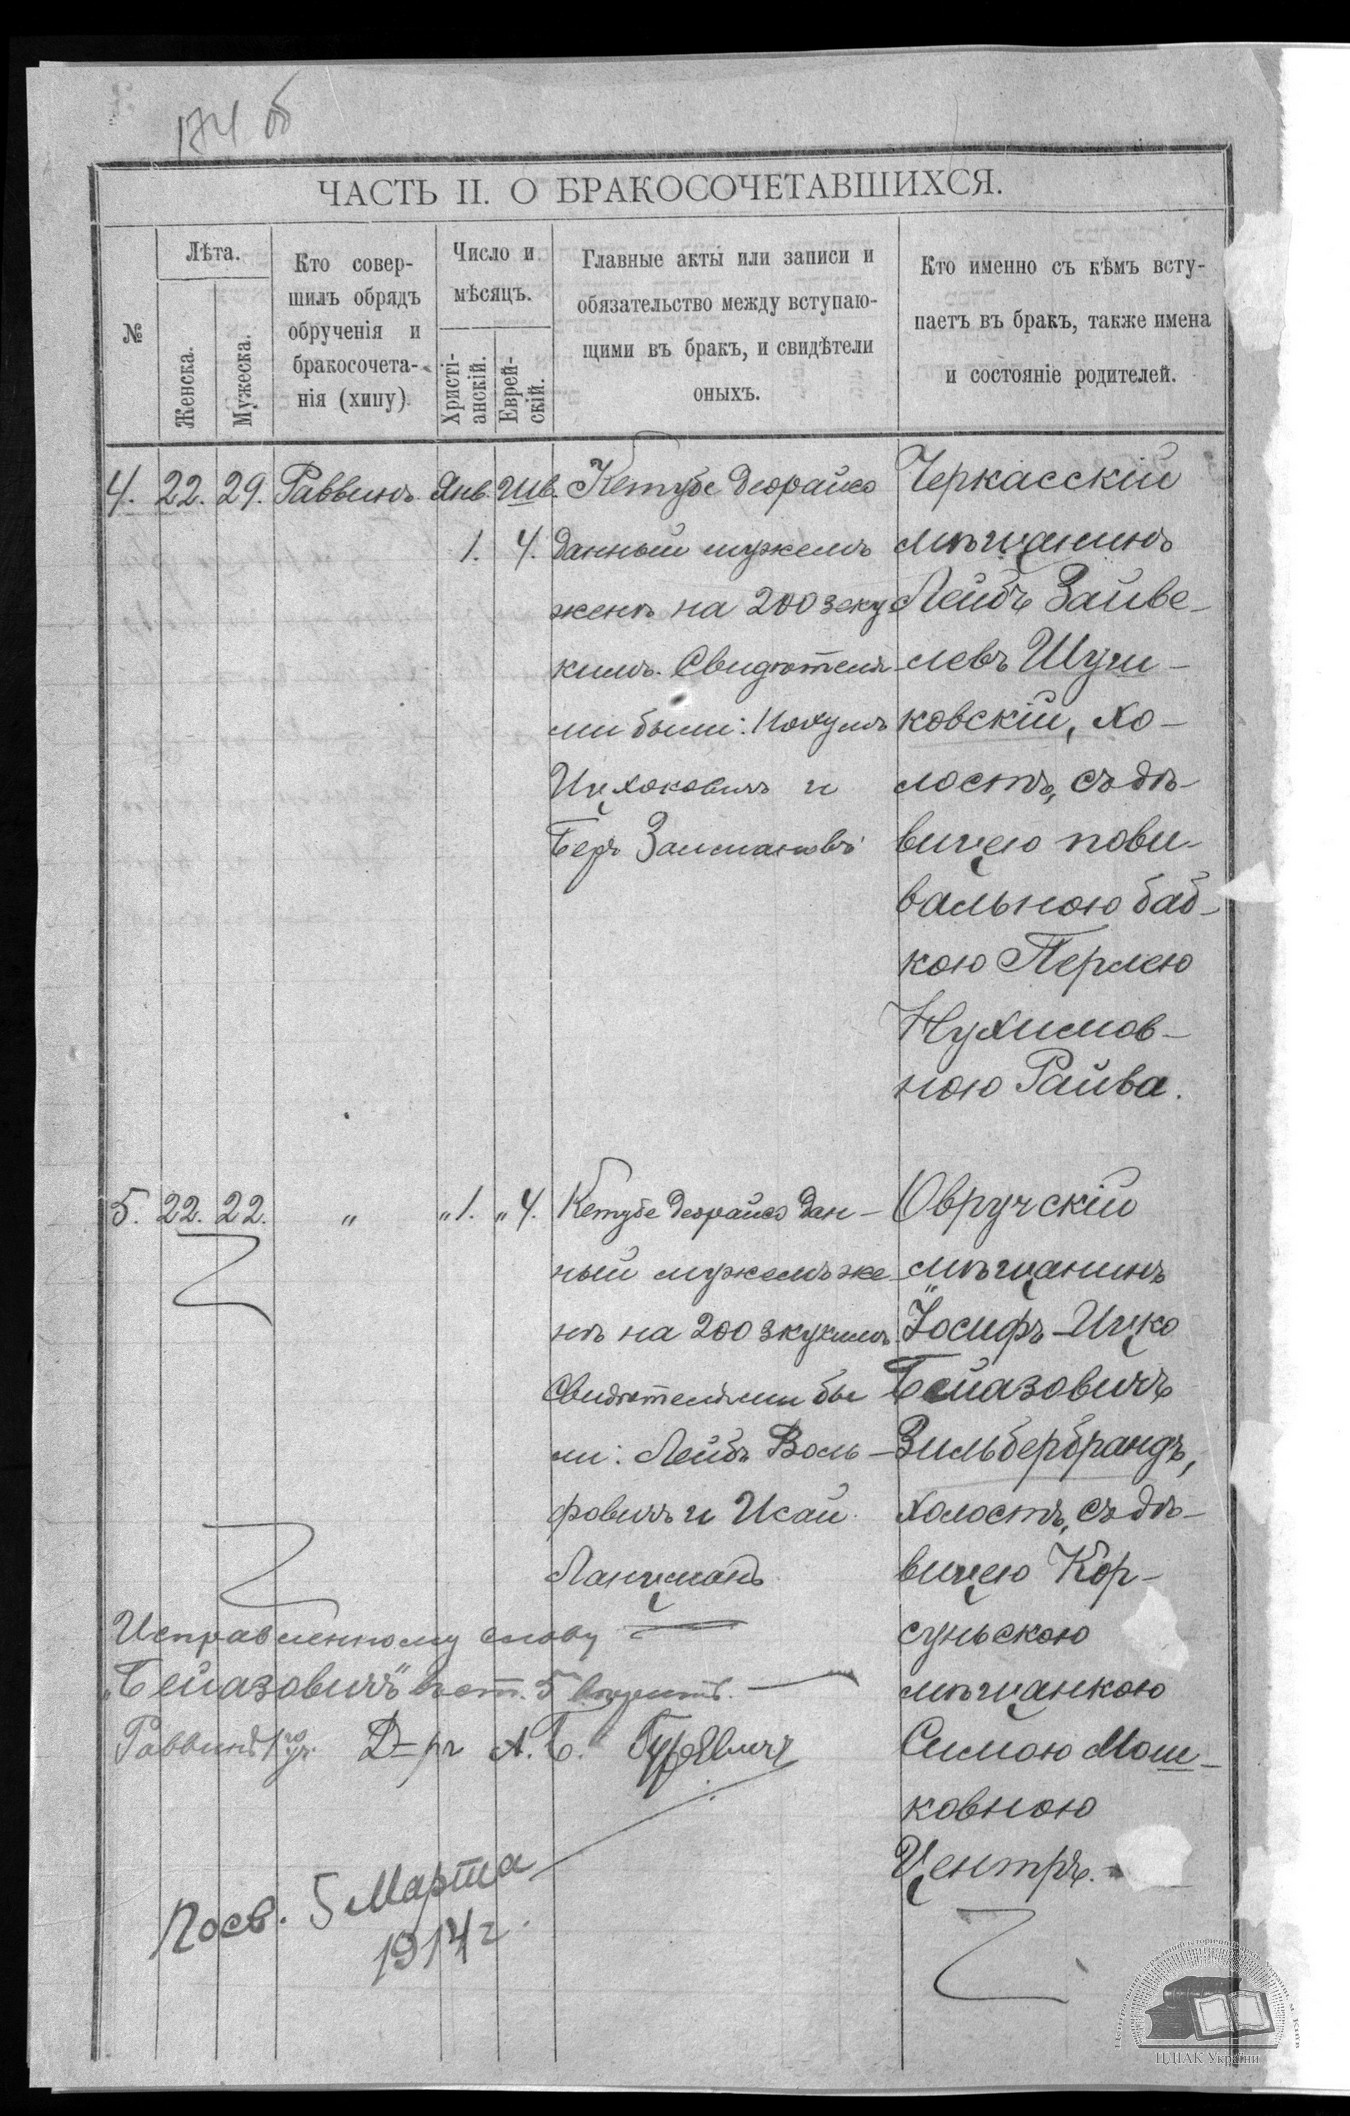 174 об
ЧАСТЬ II. О БРАКОСОЧЕТАВШИХСЯ.
№
Лѣта.
Женска.
Мужеска.
Кто совер-
шилъ обрядъ
обрученія и
бракосочета-
нія (хипу)
Число и
мѣсяцъ.
Христі-
анскій.
Еврей-
скій.
Главные акты или записи и
обязательство между вступаю-
щими въ бракъ, и свидѣтели
оныхъ.
Кто именно съ кѣмъ всту-
паетъ въ бракъ, также имена
и состояніе родителей.
4. 22. 29. Раввинъ Янв. Шв.
1. 4.
Кетубе деорайсо
данный мужемъ
женѣ на 200 зеку
кимъ. Свидѣтеля
ми были: Нохумъ
Ицхоковичъ и
Беръ Залмановъ
Черкасскій
мѣщанинъ
Лейбъ Зайве-
левъ Шучи-
ковскій, хо-
лостъ, съ дѣ-
вицею пови-
вальною баб-
кою Перлею
Нухимов-
ною Райва.
5. 22. 22. „ „1. „4.
Кетубе деорайсо дан-
ный мужемъ же-
нѣ на 200 зкукимъ
Свидѣтелями бы
ли: Лейбъ Воль-
фовичъ и Исай
Ланцманъ
Овручскій
мѣщанинъ
Іосифъ-Ицко
Бейазовичъ
Зильбербрандъ,
холостъ, съ дѣ-
вицею Кор-
суньскою
мѣщанкою
Симою Мош-
ковною
Центръ.
Исправленному слову
„Бейазовичъ" въ ст. 5 вѣрить.
Раввинъ 1го уч. Д=ръ А. Б. Гуревичъ
Посв. 5 Марта
1914 г.
ЦДІАК України